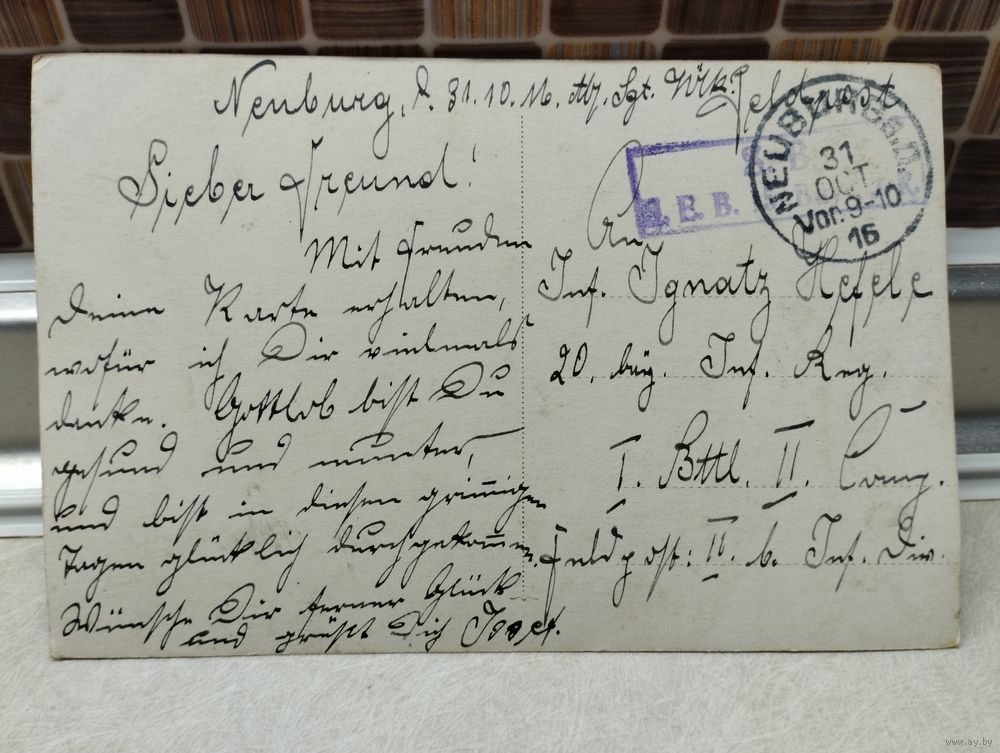 Neuburg, d. 31.10.16.
Feldpost
NEUBURG a.D.
31
OCT
Vor. 9-10
16
E. B.
Lieber Freund!
Mit Freuden
Deine Karte erhalten,
wofür ich Dir vielmals
danke. Gottlob bist Du
gesund und munter,
und bist in diesen grimmigen
Tagen glücklich durchgekommen.
Wünsche Dir ferner Glück
und grüßt Dich Josef.
An
Inf. Ignatz Hefele
20. bay. Inf. Reg.
I. Bttl. II. Comp.
Feldpost: II. b. Inf. Div.
www.ay.by